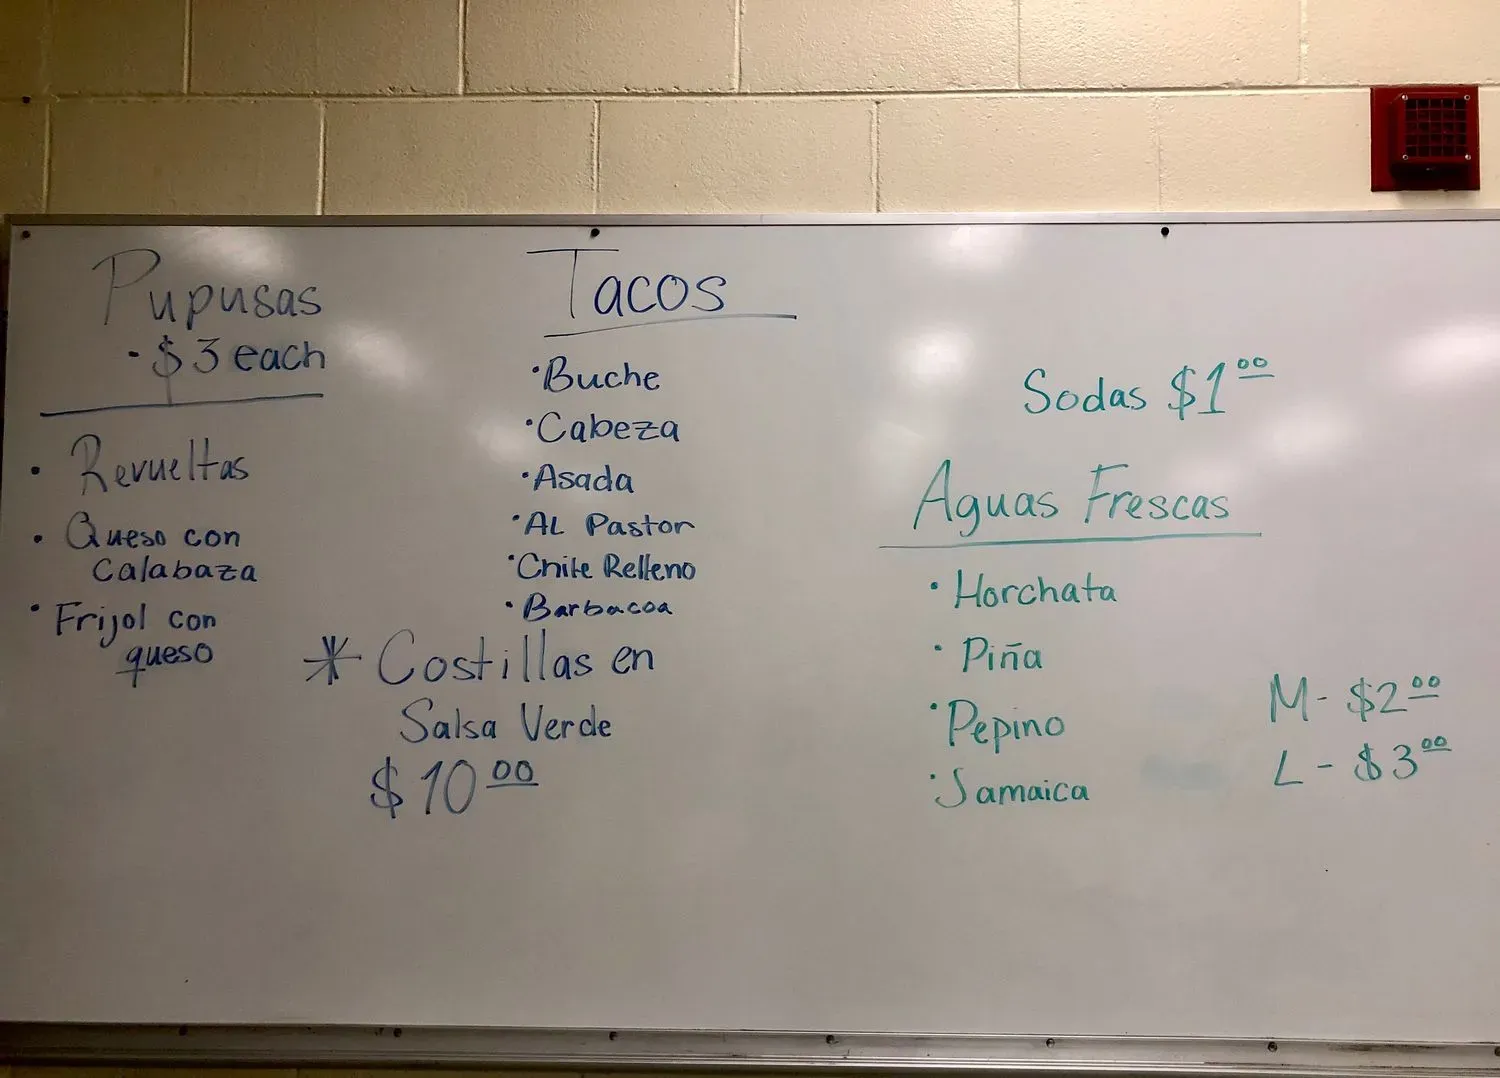 Pupusas
- $3 each
• Revueltas
• Queso con
calabaza
• Frijol con
queso
Tacos
• Buche
• Cabeza
• Asada
• AL Pastor
• Chile Relleno
• Barbacoa
* Costillas en
Salsa Verde
$10.00
Sodas $1.00
Aguas Frescas
• Horchata
• Piña
• Pepino
• Jamaica
M - $2.00
L - $3.00